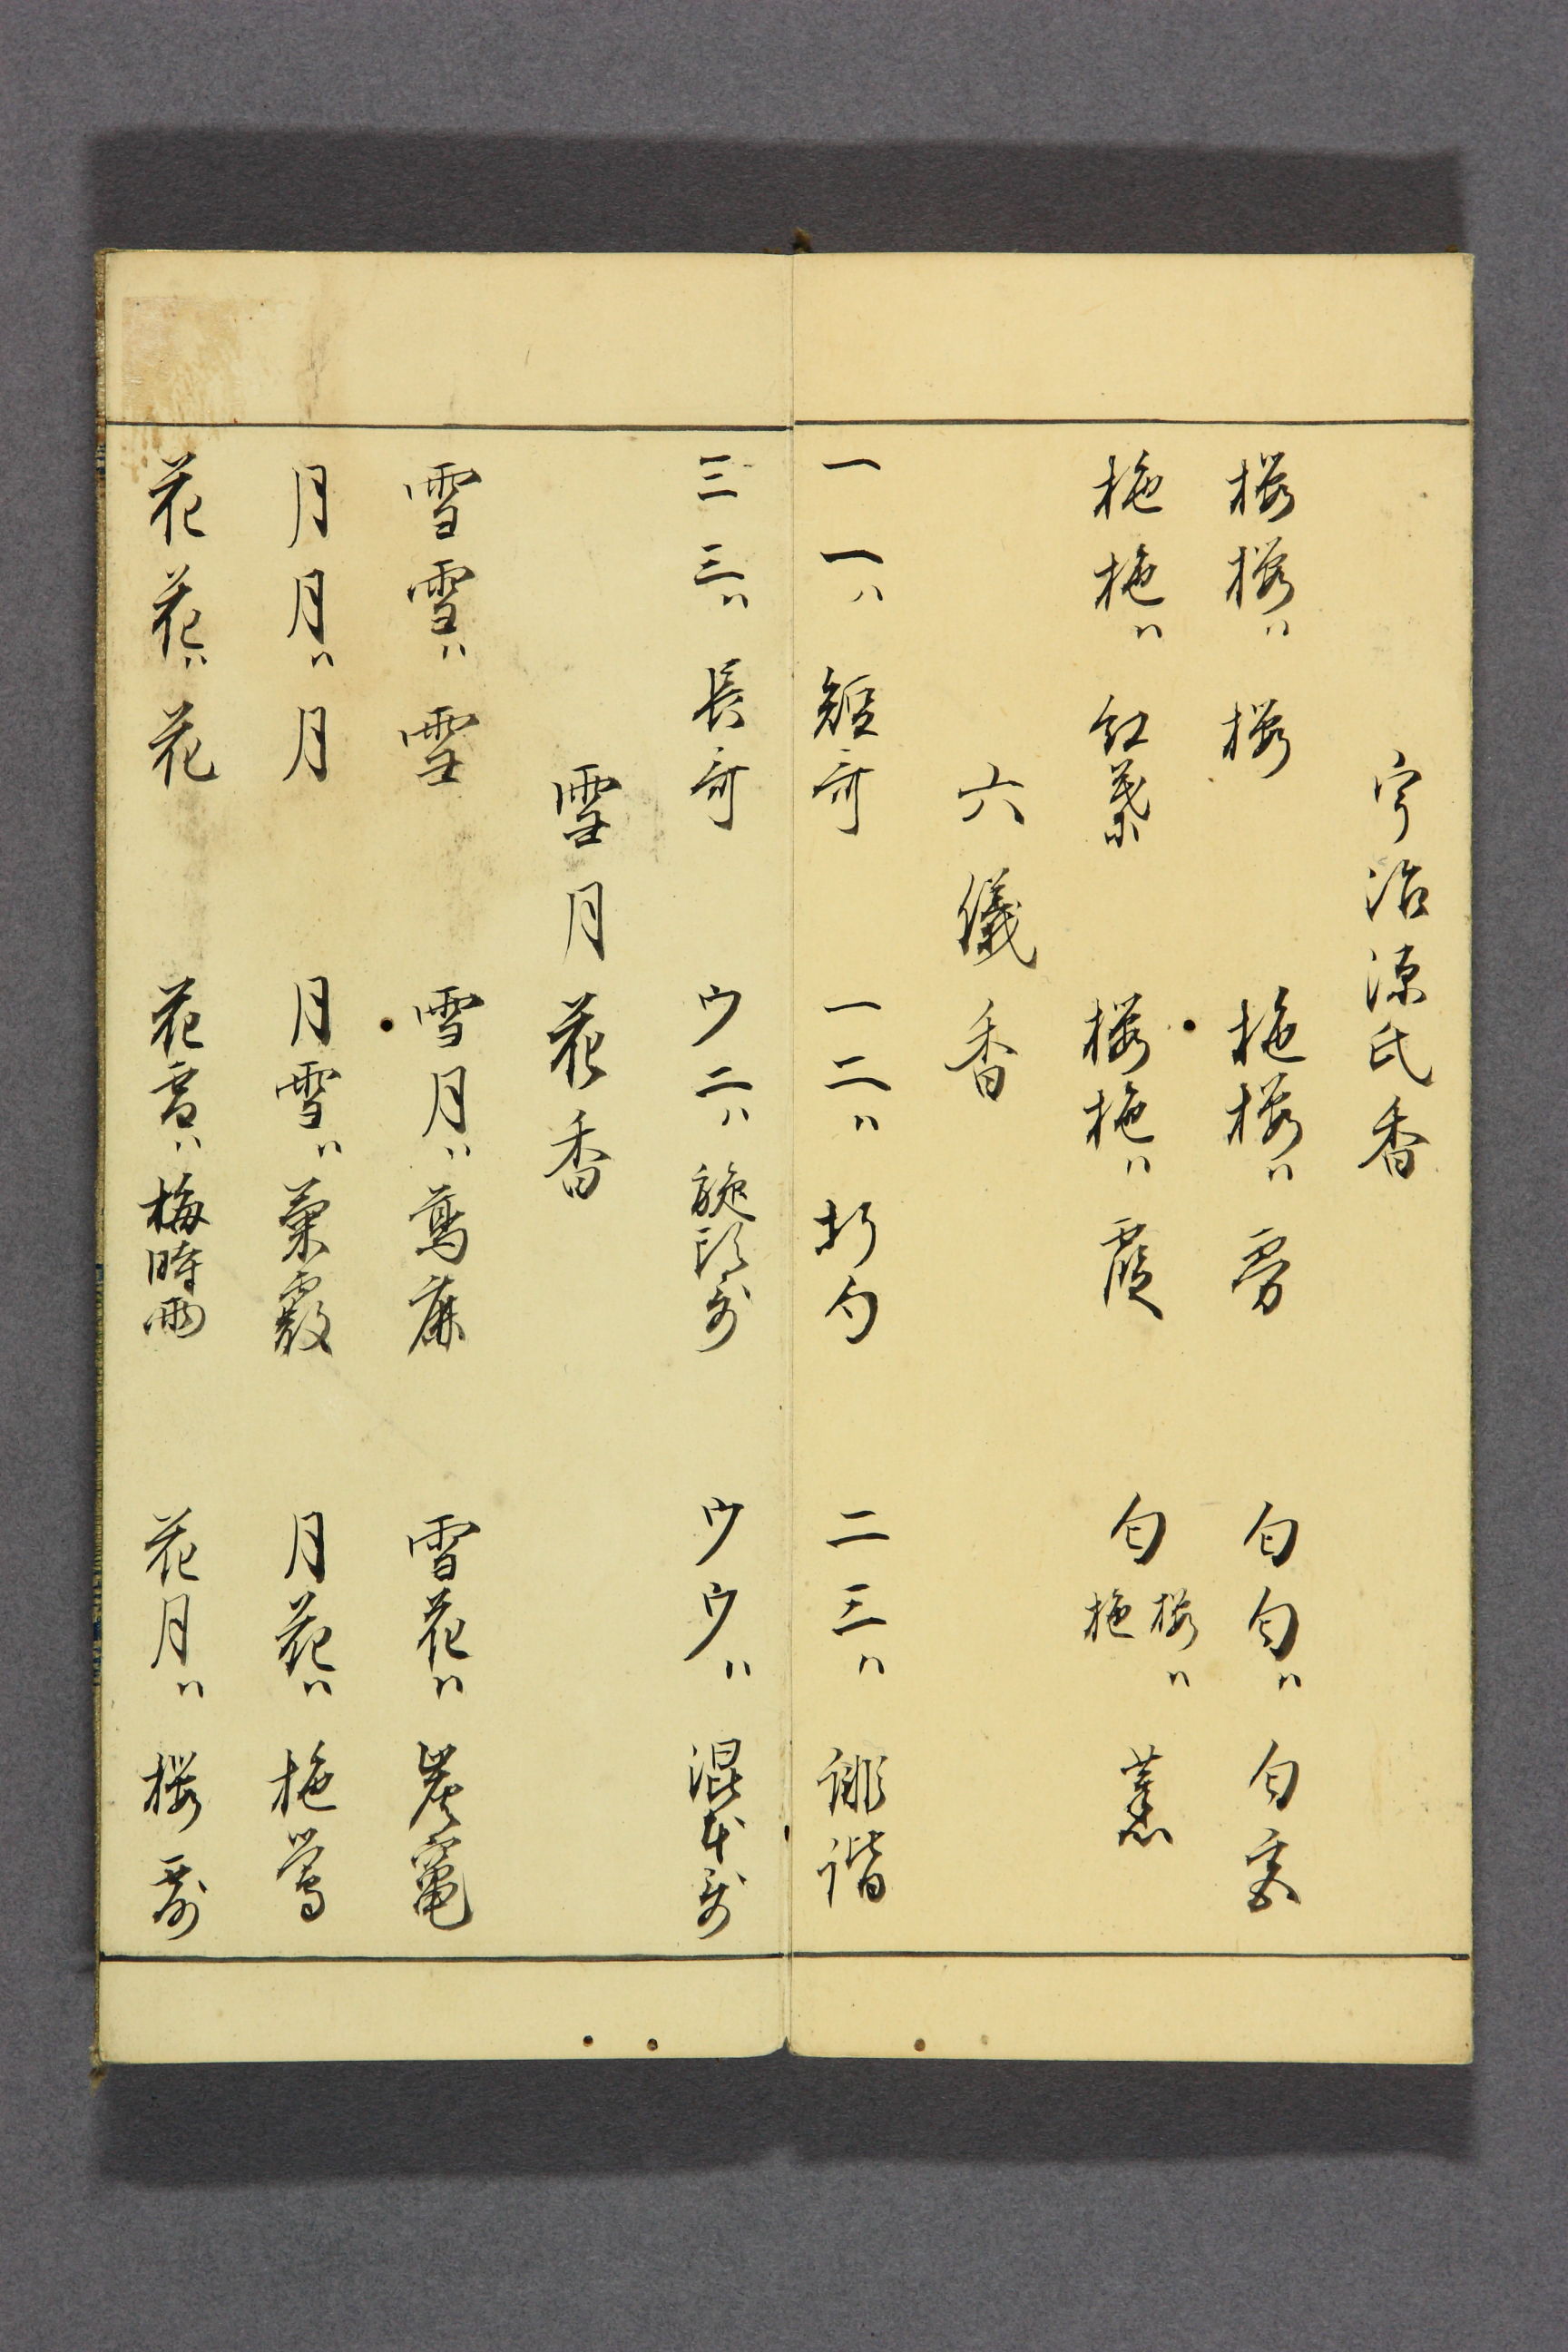 宇治源氏香
桜桜ハ 桜 梅桜ハ 匂匂ハ 匂宮
梅梅ハ 紅葉 桜梅ハ 霞 匂桜梅ハ 薫
六儀香
一一ハ 短哥 一二ハ 折句 二三ハ 誹諧
三三ハ 長哥 ウ二ハ 旋頭歌 ウウハ 混本歌
雪月花香
雪雪ハ 雪 雪月ハ 雪花ハ 炭竈
月月ハ 月 月雪ハ 菊 月花ハ 梅鶯
花花ハ 花 花雪ハ 梅時雨 花月ハ 桜